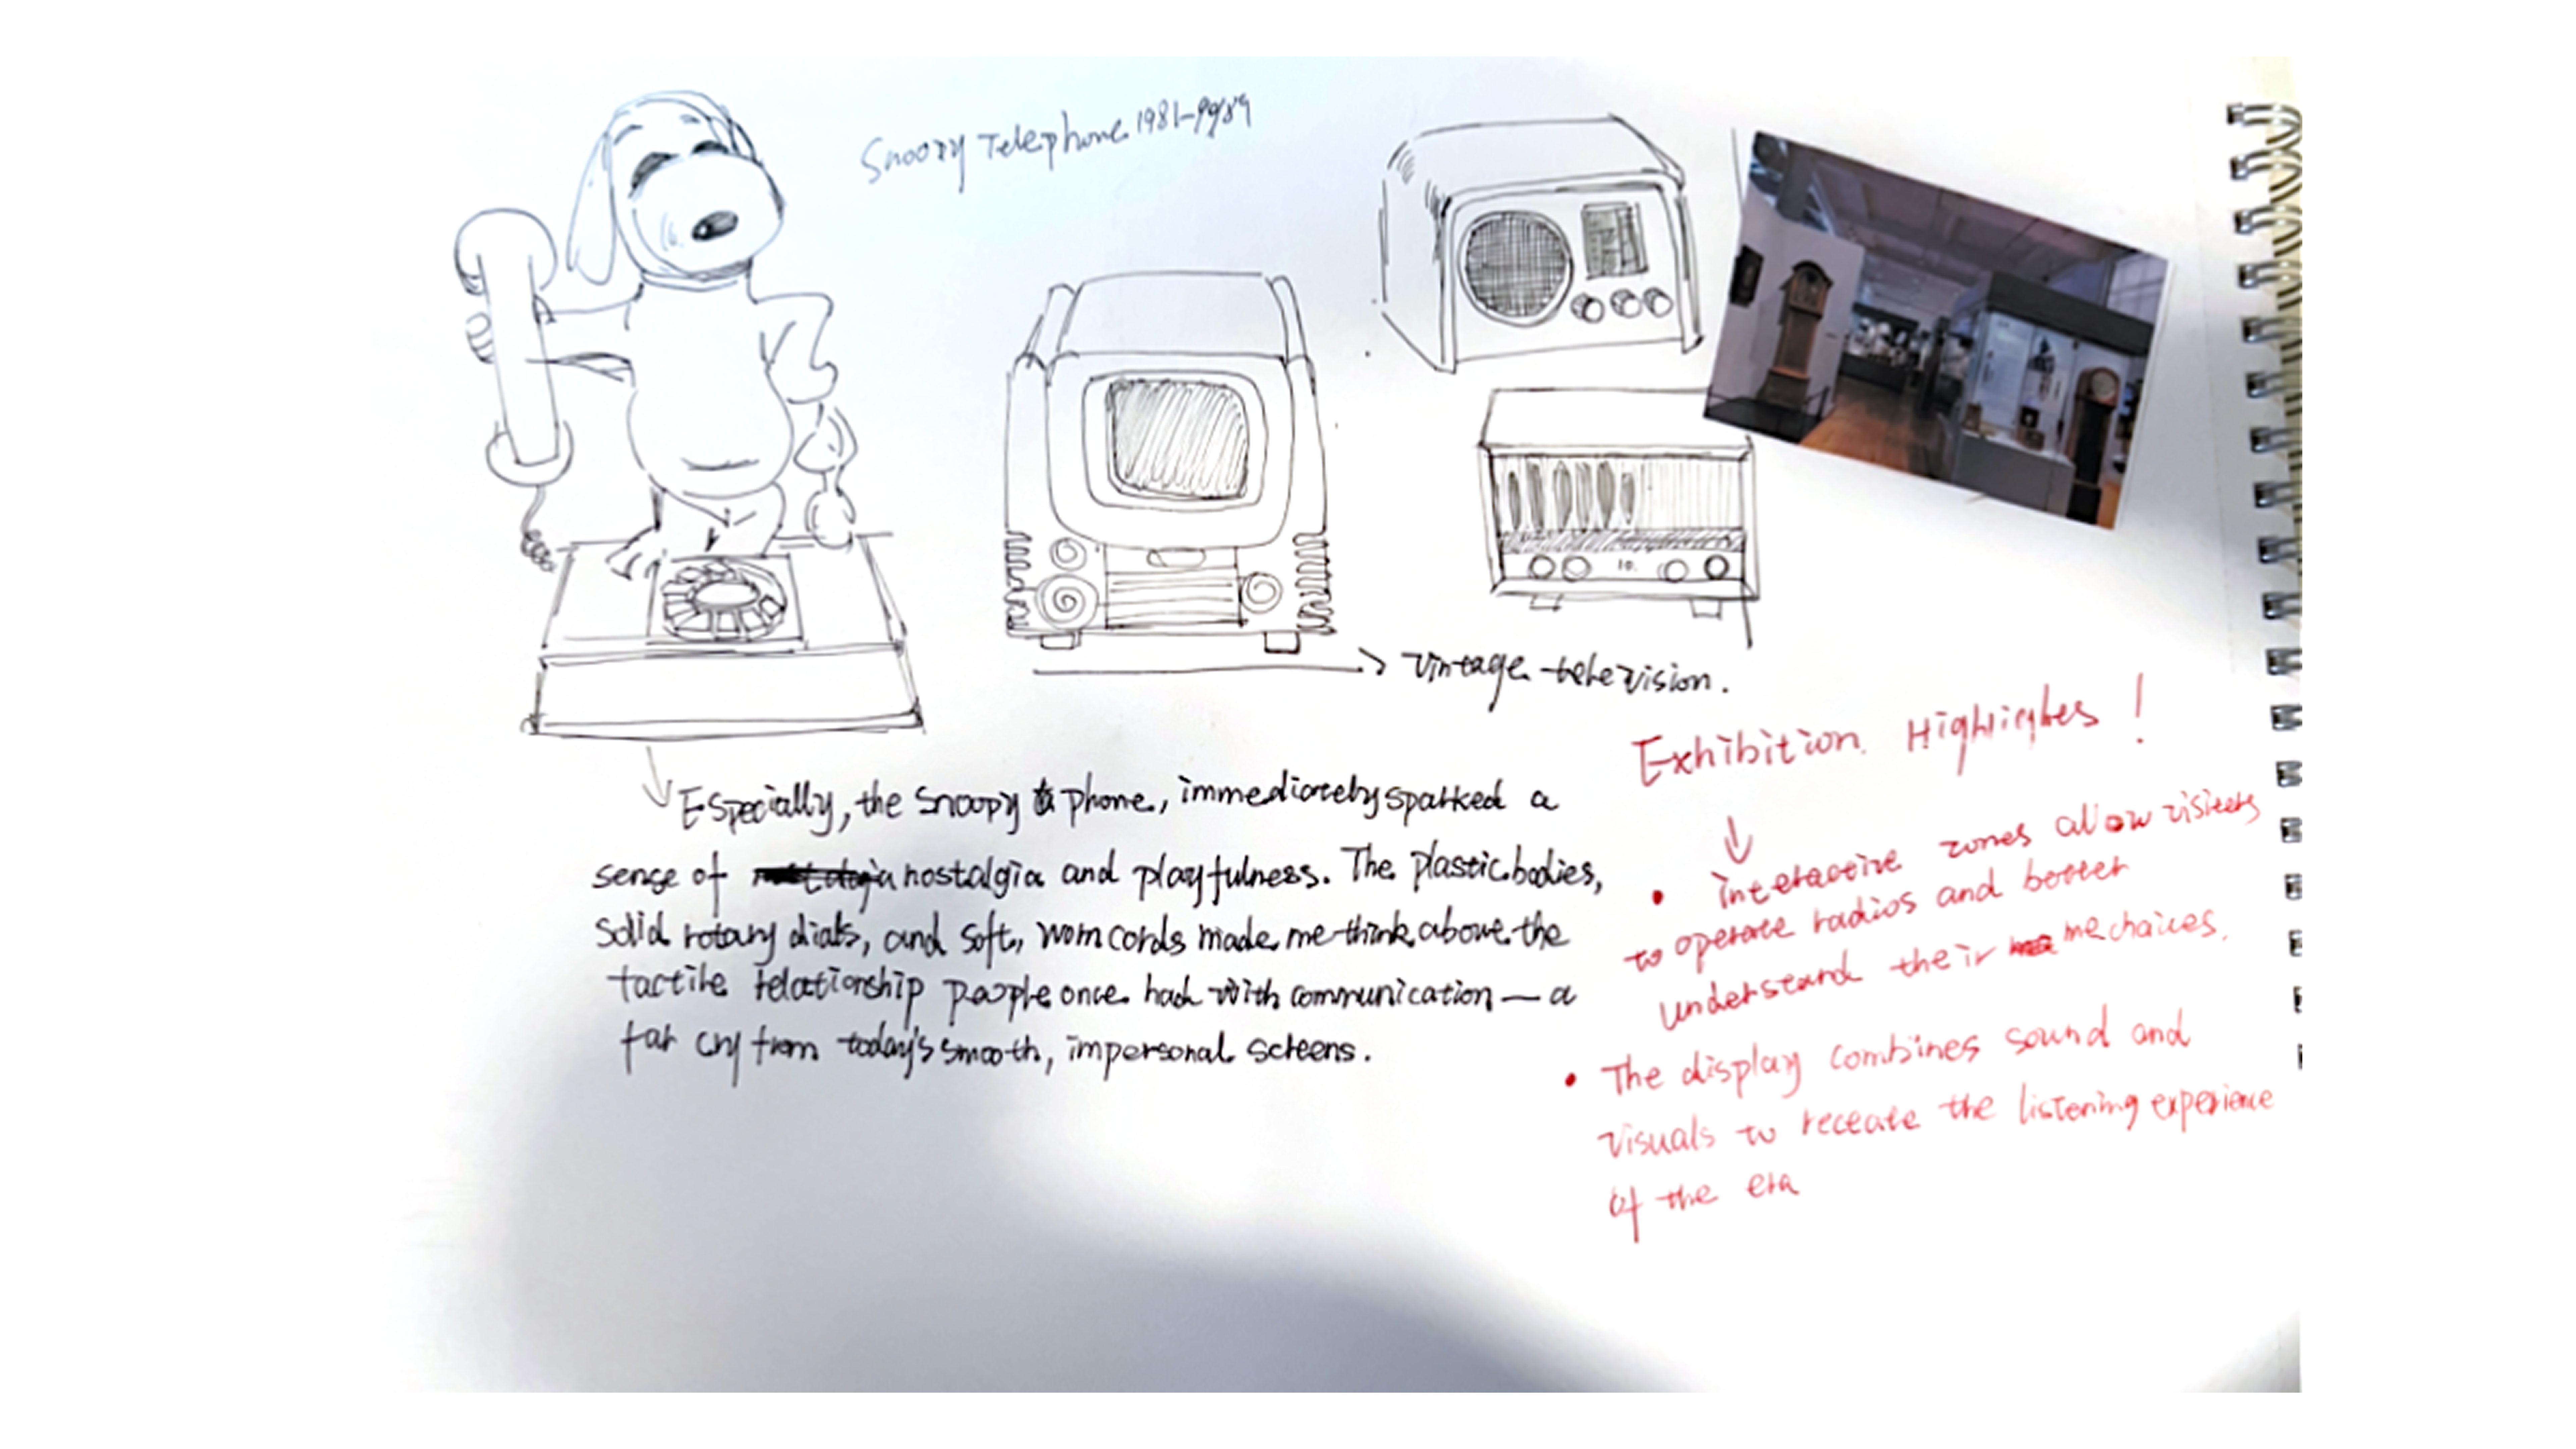 Snoopy Telephone 1981-1989
vintage television.
Especially, the Snoopy phone, immediately sparked a
sense of nostalgia and playfulness. The plastic bodies,
solid rotary dials, and soft, worn cords made me think about the
tactile relationship people once had with communication — a
far cry from today's smooth, impersonal screens.
Exhibition Highlights !
• interactive zones allow visitors
to operate radios and better
understand their mechanics.
• The display combines sound and
visuals to receate the listening experience
of the era